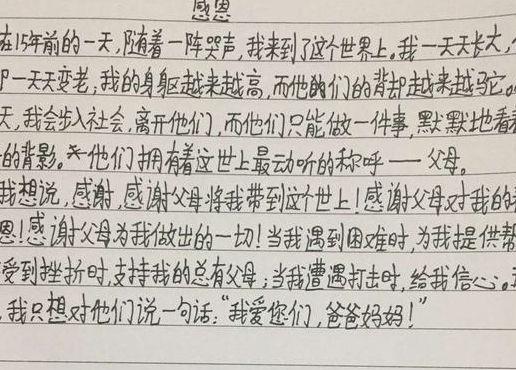 感恩
在15年前的一天,随着一阵哭声,我来到了这个世界上。我一天天长大,
一天天变老;我的身躯越来越高,而他们的背却越来越驼。
天,我会步入社会,离开他们,而他们只能做一件事,默默地看着
的背影。他们拥有着这世上最动听的称呼——父母。
我想说,感谢,感谢父母将我带到这个世上!感谢父母对我的
恩!感谢父母为我做出的一切!当我遇到困难时,为我提供帮
受到挫折时,支持我的总有父母;当我遭遇打击时,给我信心。
,我只想对他们说一句话:“我爱您们,爸爸妈妈!”